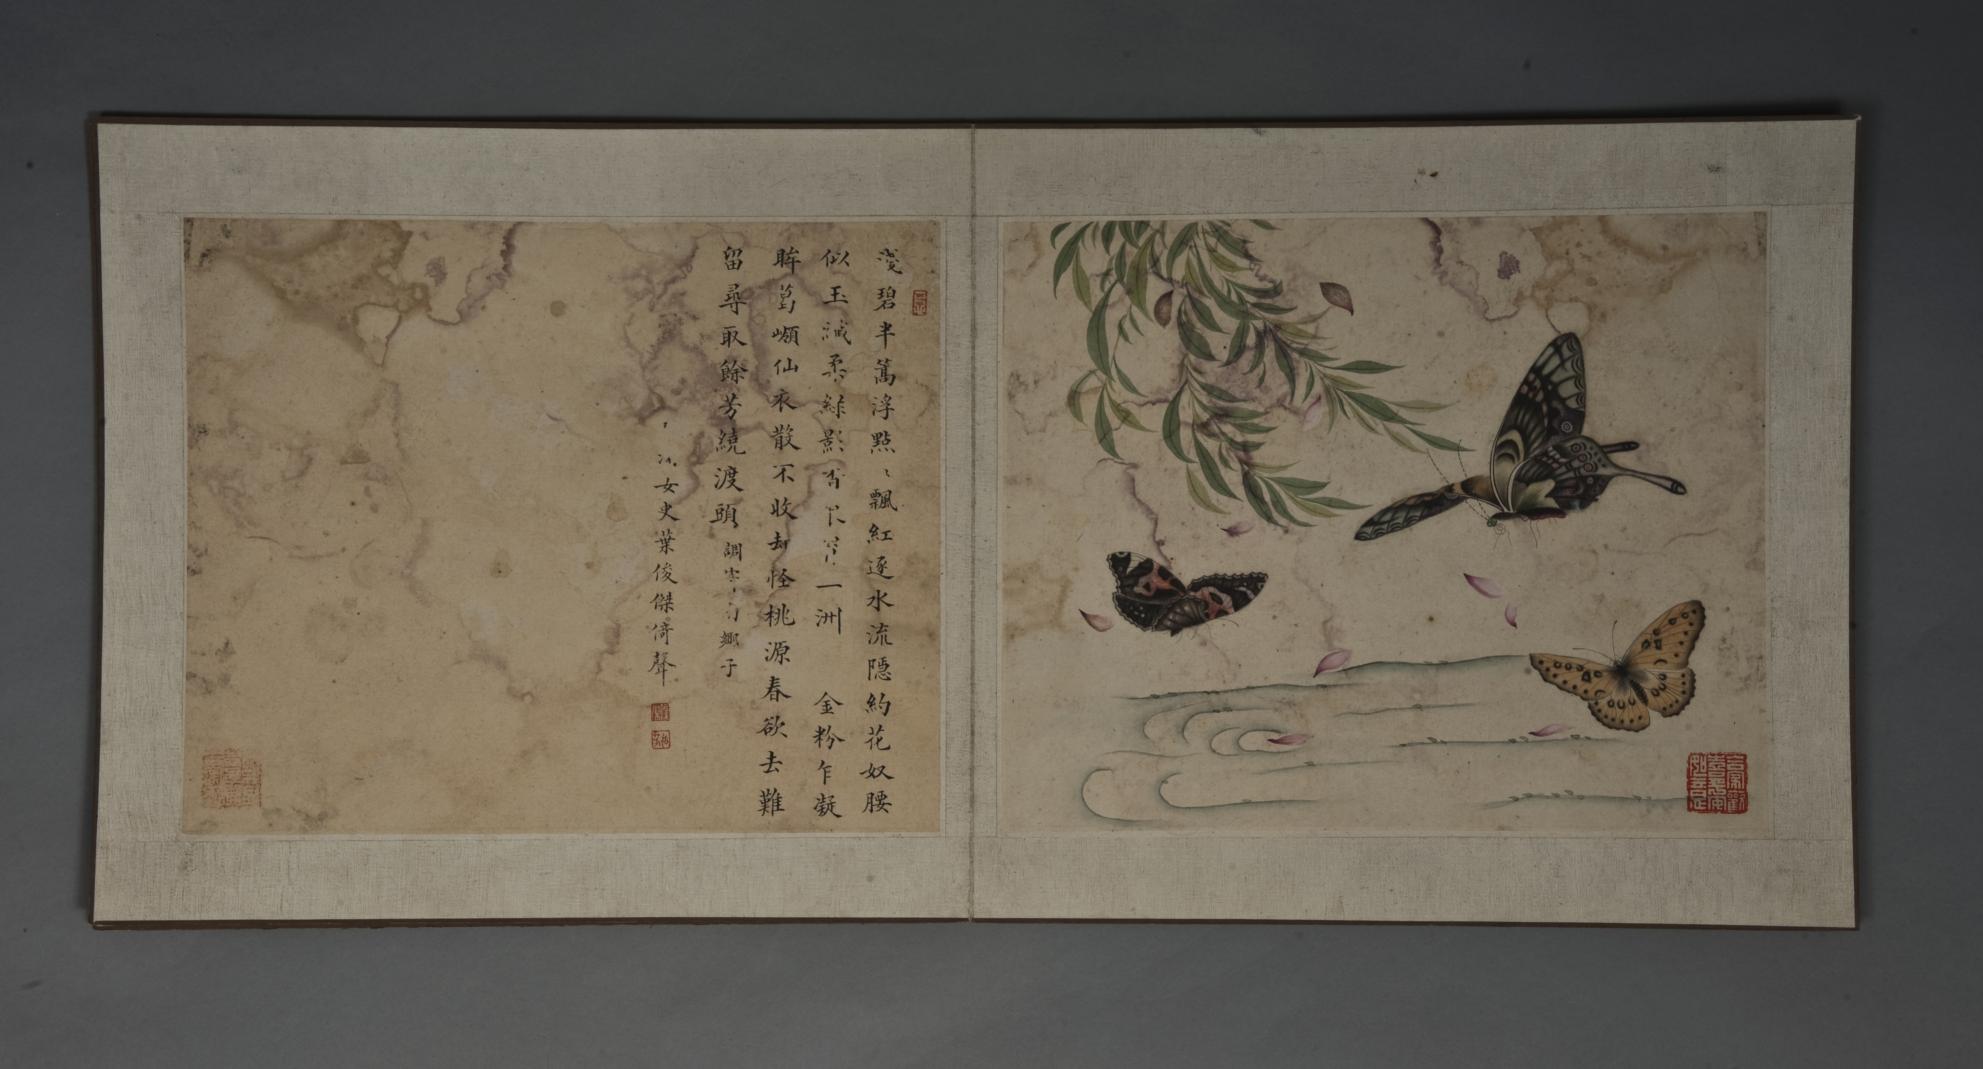 淺碧半篙浮點〻飄紅逐水流隱約花奴腰
似玉減柔絲影一洲 金粉乍凝
眸葛嶺仙衣散不收却怪桃源春欲去難
留尋取餘芳繞渡頭 調寄子
女史葉俊傑倚聲